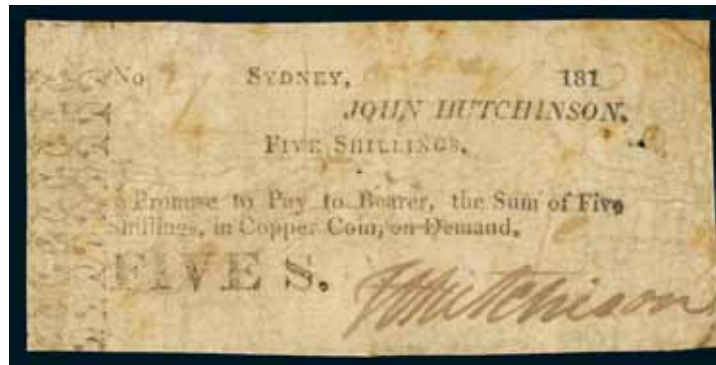 No SYDNEY, 181
JOHN HUTCHINSON.
FIVE SHILLINGS.
I Promise to Pay to Bearer, the Sum of Five
Shillings, in Copper Coin, on Demand.
FIVE S.
J Hutchison